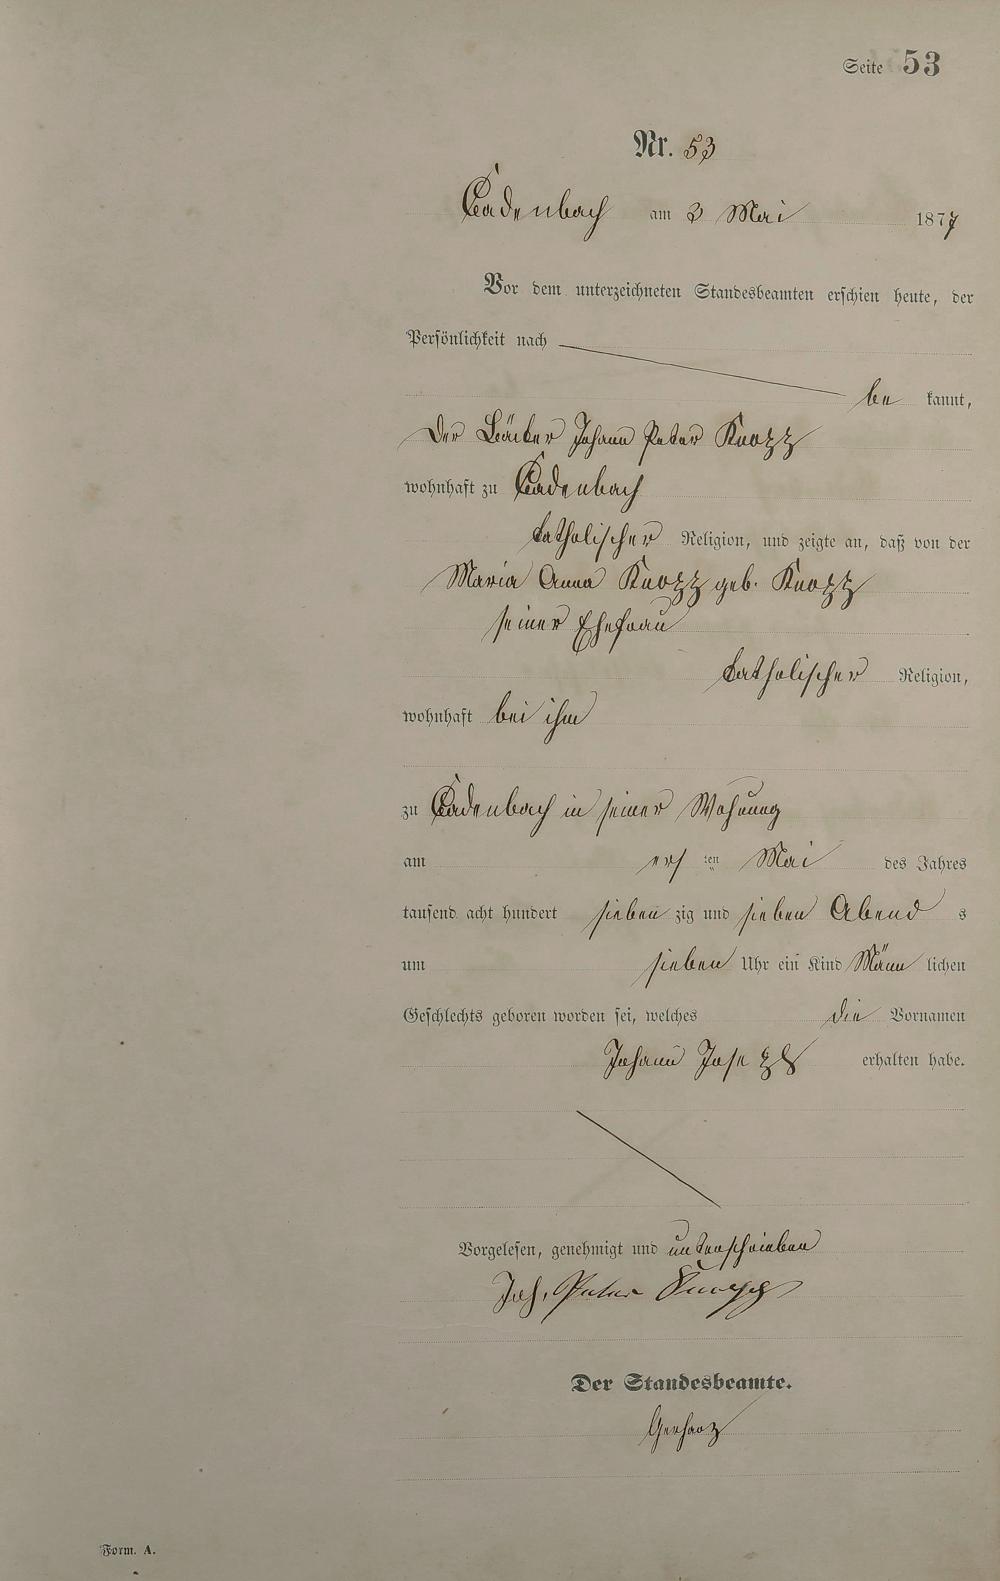 Seite 53
Nr. 53
Cadenbach am 3 Mai 1877
Vor dem unterzeichneten Standesbeamten erschien heute, der
Persönlichkeit nach
be kannt,
Der Bäcker Johann Peter Knopp
wohnhaft zu Cadenbach
katholischer Religion, und zeigte an, daß von der
Maria Anna Knopp geb. Knopp
seiner Ehefrau
katholischer Religion,
wohnhaft bei ihm
zu Cadenbach in seiner Wohnung
am ers ten Mai des Jahres
tausend acht hundert sieben zig und sieben Abend s
um sieben Uhr ein Kind Männ lichen
Geschlechts geboren worden sei, welches die Vornamen
Johann Joseph erhalten habe.
Vorgelesen, genehmigt und unterschrieben
Joh. Peter Knopp
Der Standesbeamte.
Gerharz
Form. A.